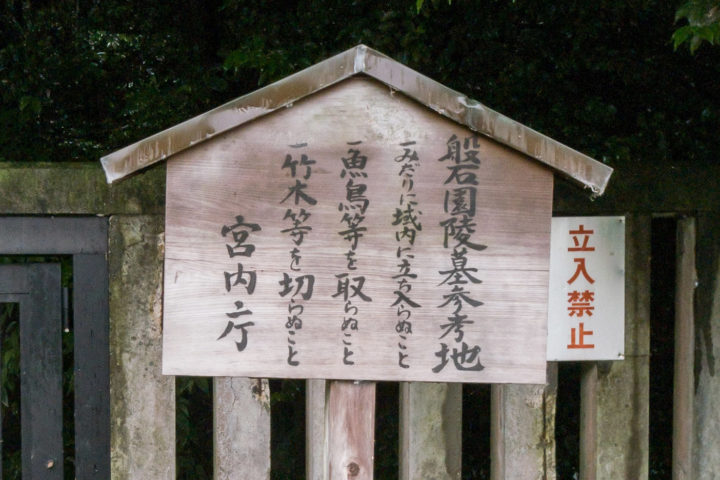 般石園陵墓参考地
一みだりに域内に立ち入らぬこと
一魚鳥等を取らぬこと
一竹木等を切らぬこと
宮内庁
立入禁止